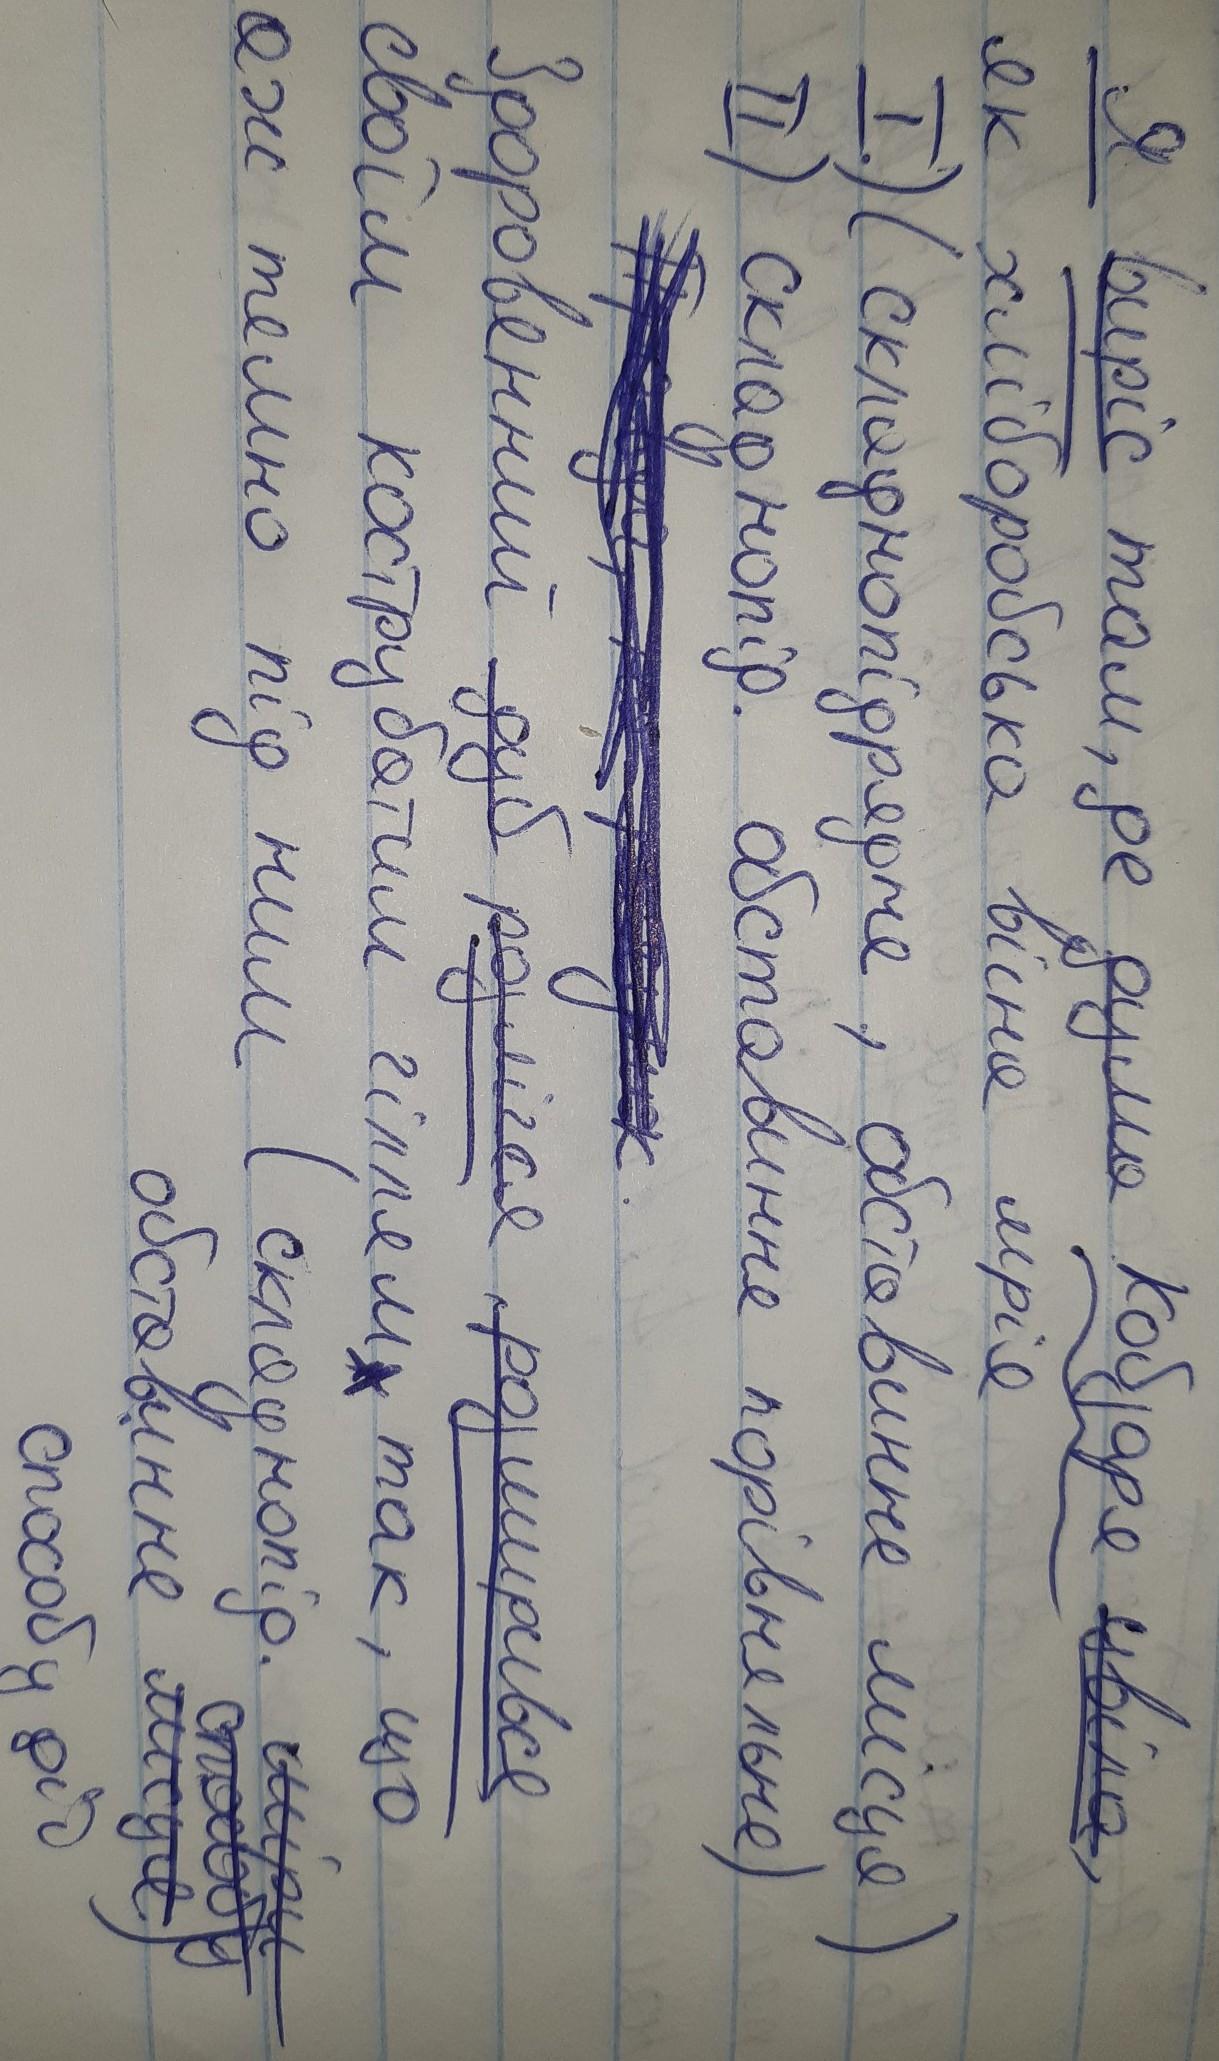 Я виріс там, де думка Кобзаря цвіла,
як хліборобська вічна мрія
I.) (складнопідрядне, обставинне місця)
II) складнопід. обставинне порівняльне)
Здоровенний дуб розлігся, розширився
своїм кострубатим гіллям так, що
аж темно під ним (складнопід. міри
способу
обставинне місця)
способу дії